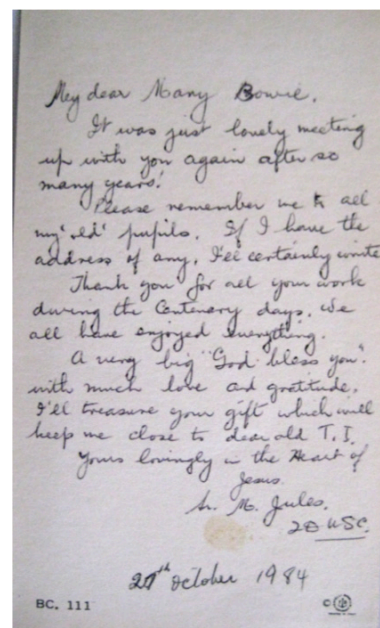 My dear Mary Bowie,
It was just lovely meeting
up with you again after so
many years!
Please remember me to all
my 'old' pupils. If I have the
address of any, I'll certainly write
Thank you for all your work
during the Centenary days. We
all have enjoyed everything.
A very big "God bless you".
with much love and gratitude.
I'll treasure your gift which will
keep me close to dear old T.I.
Yours lovingly in the Heart of
Jesus.
Sr. M. Jules.
27th October 1984
BC. 111
©